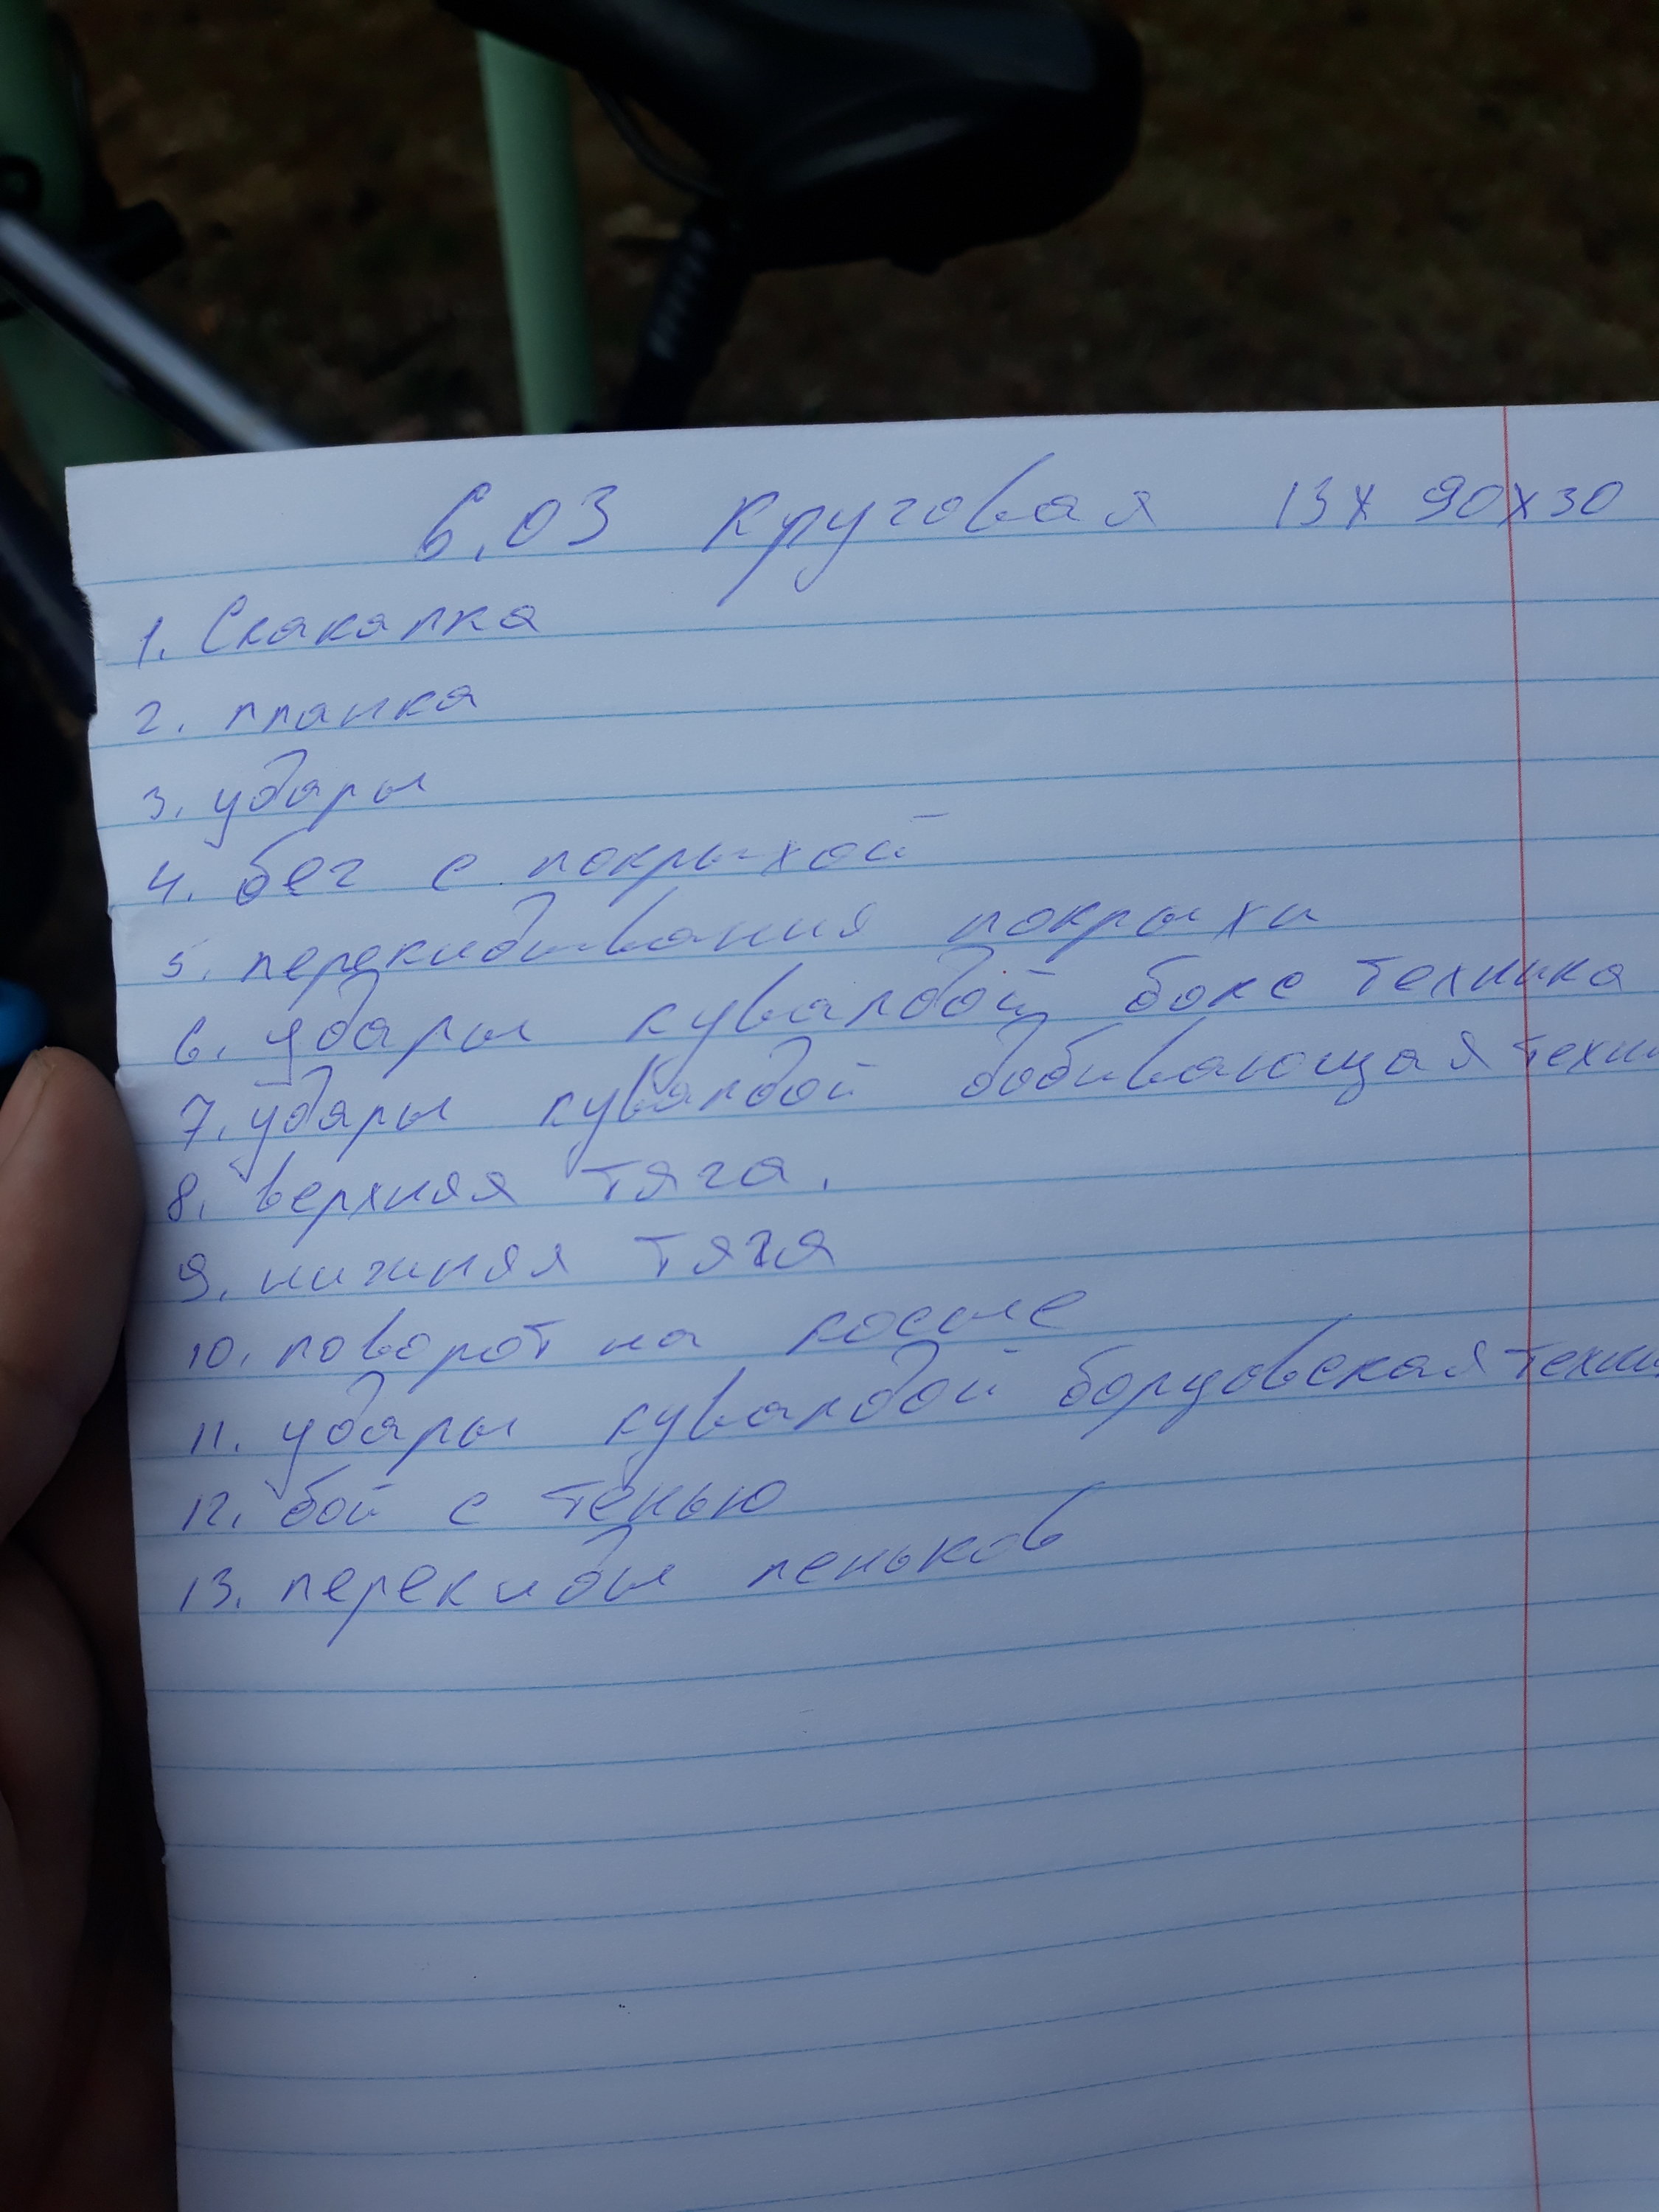 6.03 круговая 13х 90х30
1. Скакалка
2. планка
3. удары
4. бег с покрыхой
5. перекидывания покрыхи
6. удары кувалдой бокс техника
7. удары кувалдой добивающая техни
8. верхняя тяга.
9. нижняя тяга
10. поворот на
11. удары кувалдой борцовская техни
12. бой с тенью
13. перекиды пеньков